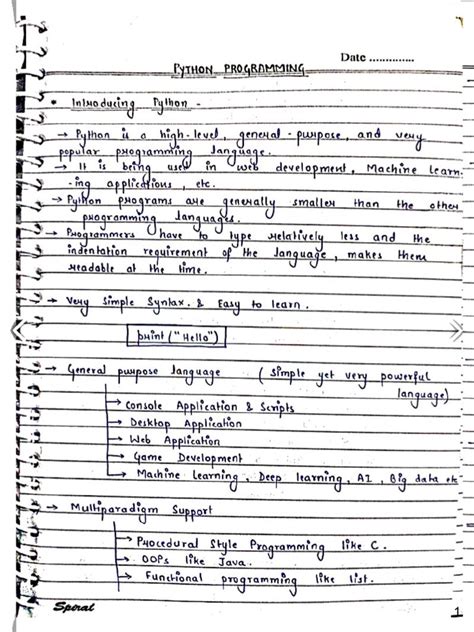 Date ..............
PYTHON PROGRAMMING
• Introducing Python -
→ Python is a high-level, general-purpose, and very
popular programming language.
→ It is being used in web development, Machine Learn-
-ing applications, etc.
→ Python programs are generally smaller than the other
programming languages.
→ Programmers have to type relatively less and the
indentation requirement of the language, makes them
readable at the time.
→ Very Simple Syntax. & Easy to learn.
print ("Hello")
→ General purpose language ( Simple yet very powerful
language)
→ Console Application & Scripts
→ Desktop Application
→ Web Application
→ Game Development
→ Machine Learning, Deep learning, AI, Big data etc
→ Multiparadigm Support
→ Procedural Style Programming like C.
→ OOPs like Java.
→ Functional programming like list.
Spiral
1